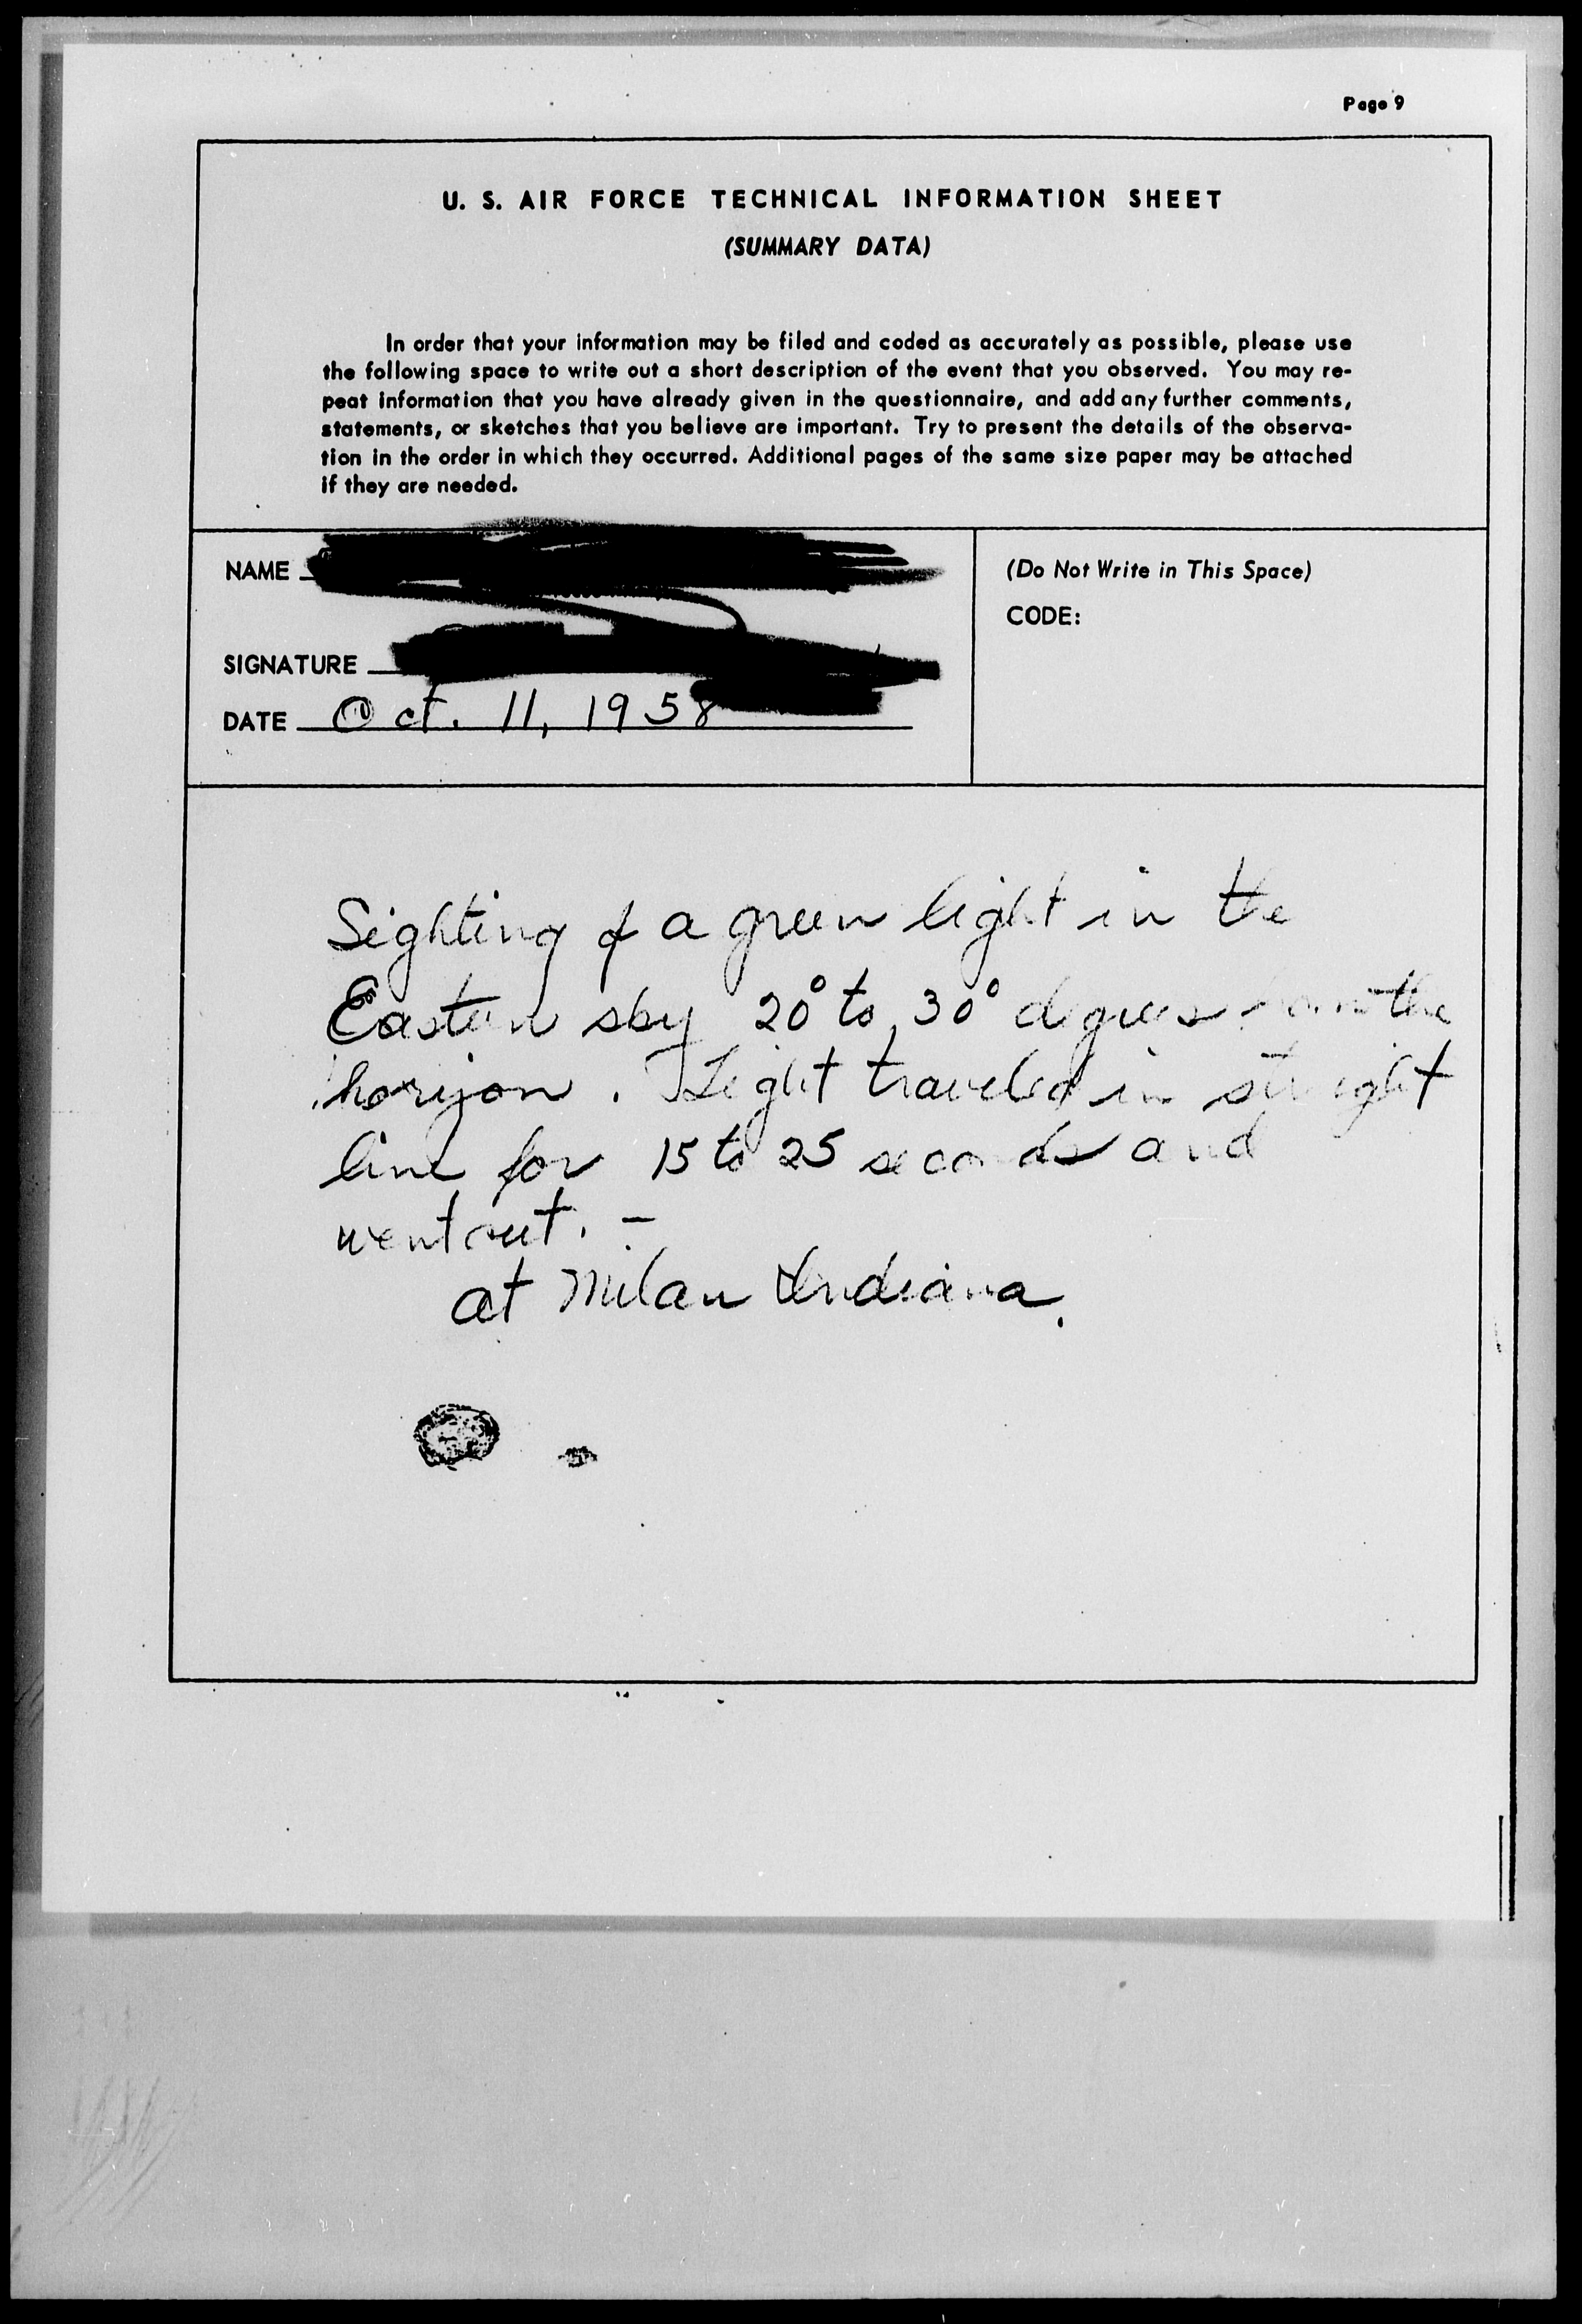 Page 9
U. S. AIR FORCE TECHNICAL INFORMATION SHEET
(SUMMARY DATA)
In order that your information may be filed and coded as accurately as possible, please use
the following space to write out a short description of the event that you observed. You may re-
peat information that you have already given in the questionnaire, and add any further comments,
statements, or sketches that you believe are important. Try to present the details of the observa-
tion in the order in which they occurred. Additional pages of the same size paper may be attached
if they are needed.
NAME
(Do Not Write in This Space)
CODE:
SIGNATURE
DATE Oct. 11, 1958
Sighting of a green light in the
Eastern sky 20° to 30° degrees from the
horizon. Light traveled in straight
line for 15 to 25 seconds and
went out. -
at Milan Indiana.